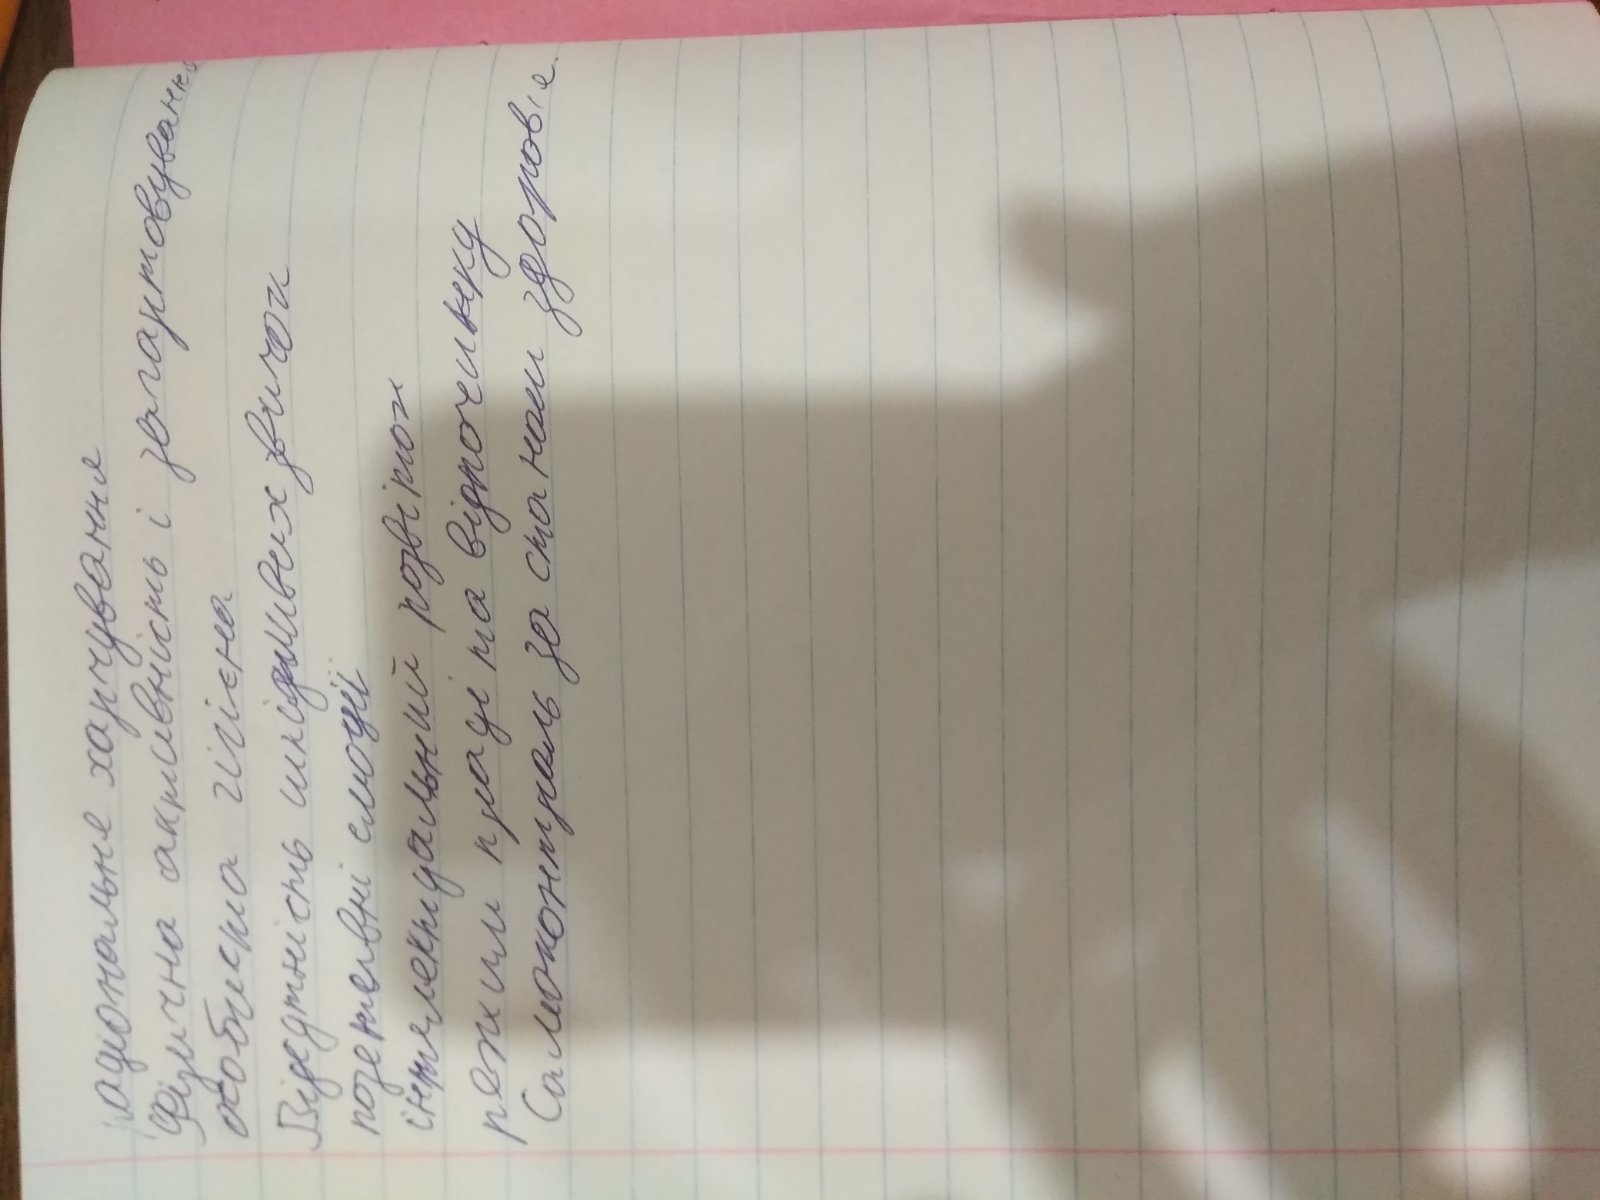 раціональне харчування
Фізична активність і загартовування
особиста гігієна
Відсутність шкідливих звичок
позитивні емоції
інтелектуальний розвіток
режим праці та відпочинку
Самоконтроль за станом здоровія.